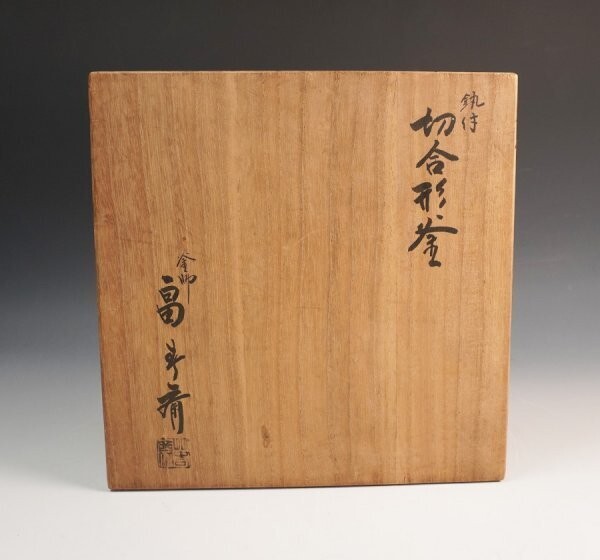 釻付
切合形釜
釜師
畠春斎